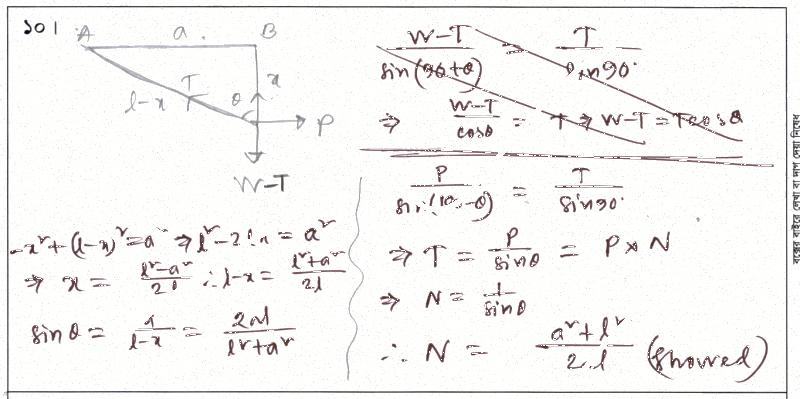 ১০।
A a. B
T
l-x
θ
x
C
P
W-T
-x² + (l-x)² = a² ⇒ l² - 2lx = a²
⇒ x = l²-a² / 2l ∴ l-x = l²+a² / 2l
sin θ = a / l-x = 2al / l²+a²
W-T / sin(90+θ) = T / sin90°
⇒ W-T / cosθ = T ⇒ W-T = Tcosθ
P / sin(180-θ) = T / sin90
⇒ T = P / sinθ = P × N
⇒ N = 1 / sinθ
∴ N = a²+l² / 2.l (Showed)
বক্সের বাইরে লেখা বা দাগ দেয়া নিষেধ